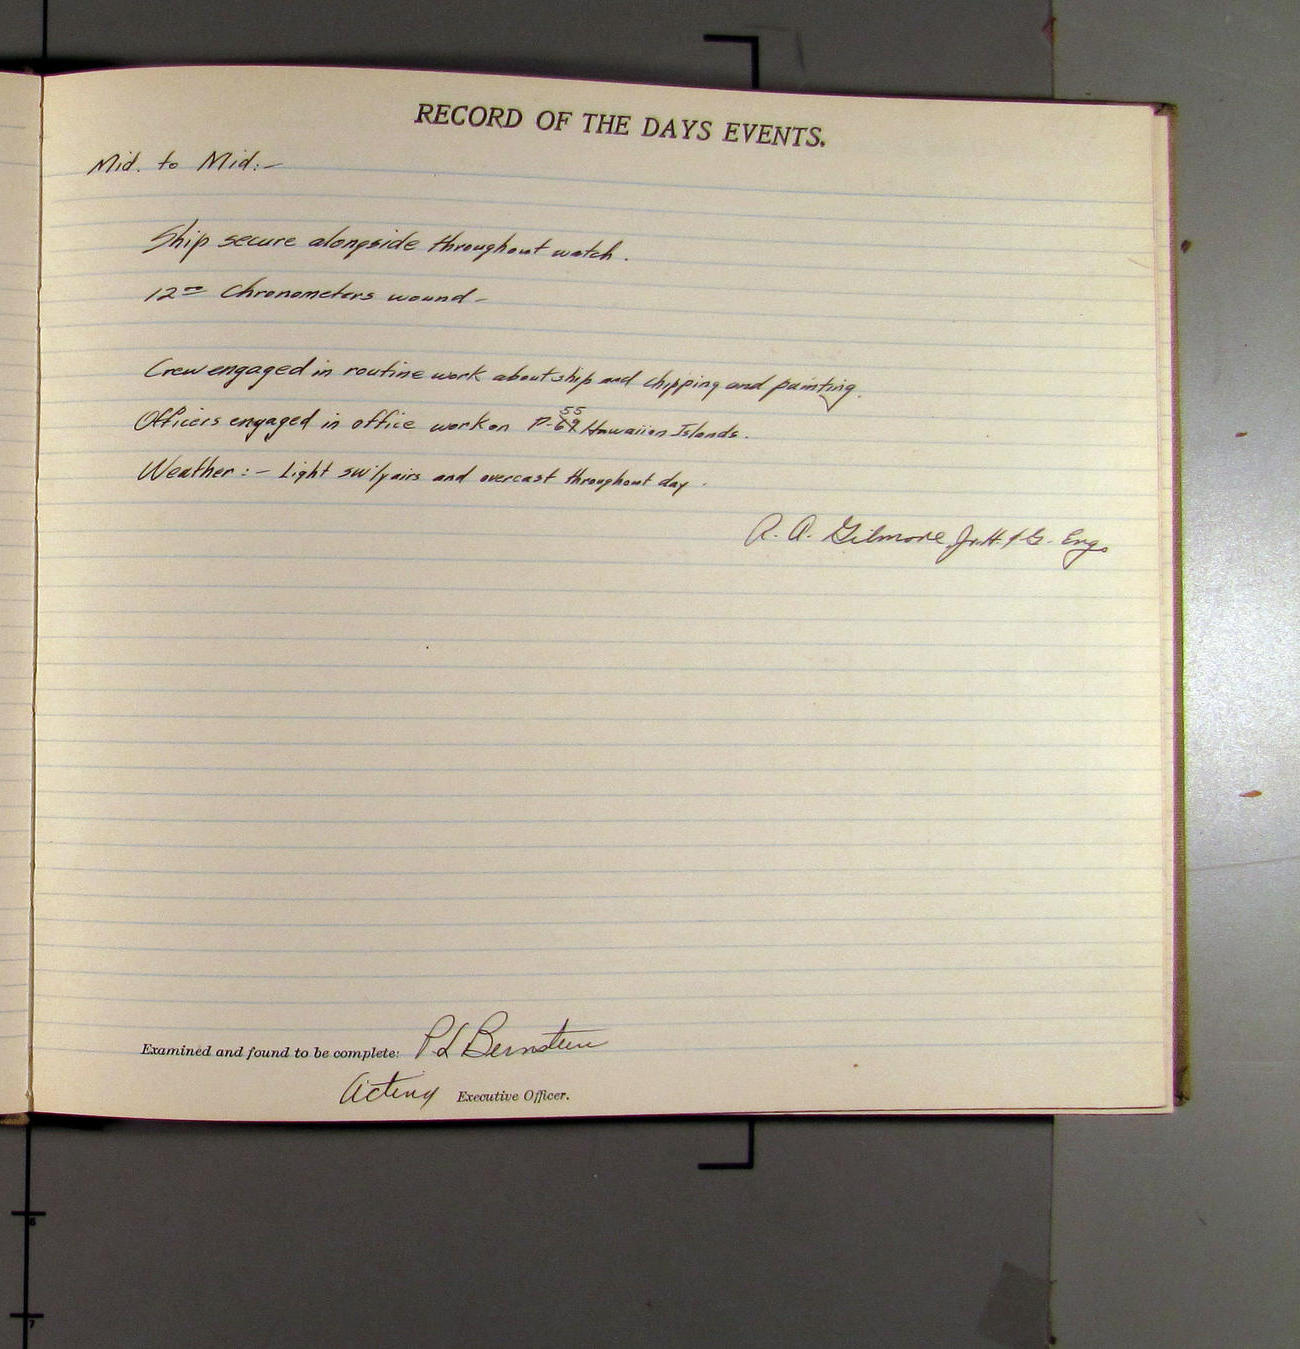 RECORD OF THE DAYS EVENTS.
Mid. to Mid:-
Ship secure alongside throughout watch.
12⁰⁰ Chronometers wound -
Crew engaged in routine work about ship and chipping and painting.
55
Officers engaged in office work on P-69 Hawaiian Islands.
Weather:- Light sw'ly airs and overcast throughout day.
R. A. Gilmore, Jr. H. & G. Eng.
Examined and found to be complete: P L Bernstein
Acting Executive Officer.
6
7